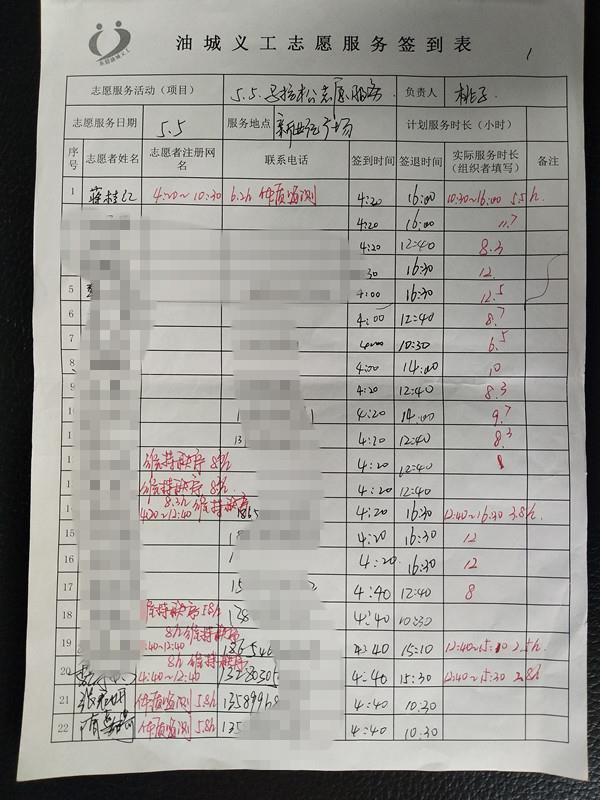 油城义工志愿服务签到表
1
志愿服务活动（项目） 5.5.马拉松志愿服务 负责人 桃子
志愿服务日期 5.5 服务地点 新世纪广场 计划服务时长（小时）
序号 志愿者姓名 志愿者注册网名 联系电话 签到时间 签退时间 实际服务时长（组织者填写） 备注
1 4:20~10:30 6.2h 体质监测 4:20 16:00 10:30~16:00 5.5h.
4:20 16:00 11.7
4:20 12:40 8.3
30 16:30 12
5 4:00 16:30 12.5
6 4:00 12:40 8.7
7 10:30 6.5
8 4:00 14:00 10
9 4:20 12:40 8.3
4:20 14:00 9.7
13 4:20 12:40 8.3
维持秩序 8h 4:20 12:40
维持秩序 8h 4:20 12:40
8.3h 维持秩序
4:20~12:40 1865 4:20 16:30 12:40~16:30 3.8h.
15 4:20 16:30 12
16 4:20 16:30 12
17 15 4:40 12:40 8
18 维持秩序 5.8h 138 4:40 10:30
19 8h 维持秩序
4:40~12:40 186540 4:40 15:10 12:40~15:10 2.5h.
20 8h 维持秩序
4:40~12:40 4:40 15:30 12:40~15:30 2.8h
21 体质监测 5.8h 4:40 10:30
22 体质监测 5.8h 135 4:40 10:30